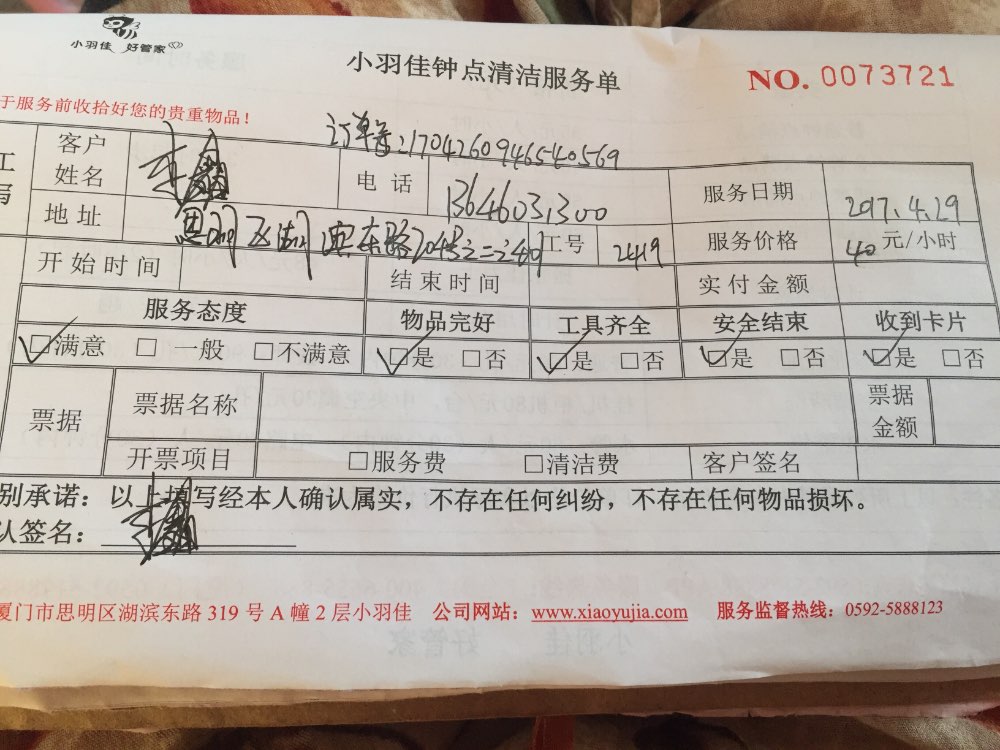 小羽佳 好管家
小羽佳钟点清洁服务单
NO. 0073721
于服务前收拾好您的贵重物品!
订单号:17042609465540569
工号 客户姓名 电话 13646031300 服务日期 2017.4.29
地址 思明区湖滨东路 工号 2419 服务价格 40元/小时
开始时间 结束时间 实付金额
服务态度 物品完好 工具齐全 安全结束 收到卡片
☑满意 □一般 □不满意 ☑是 □否 ☑是 □否 ☑是 □否 ☑是 □否
票据 票据名称 票据金额
开票项目 □服务费 □清洁费 客户签名
别承诺:以上填写经本人确认属实,不存在任何纠纷,不存在任何物品损坏。
认签名:
厦门市思明区湖滨东路 319 号 A 幢 2 层小羽佳 公司网站:www.xiaoyujia.com 服务监督热线:0592-5888123